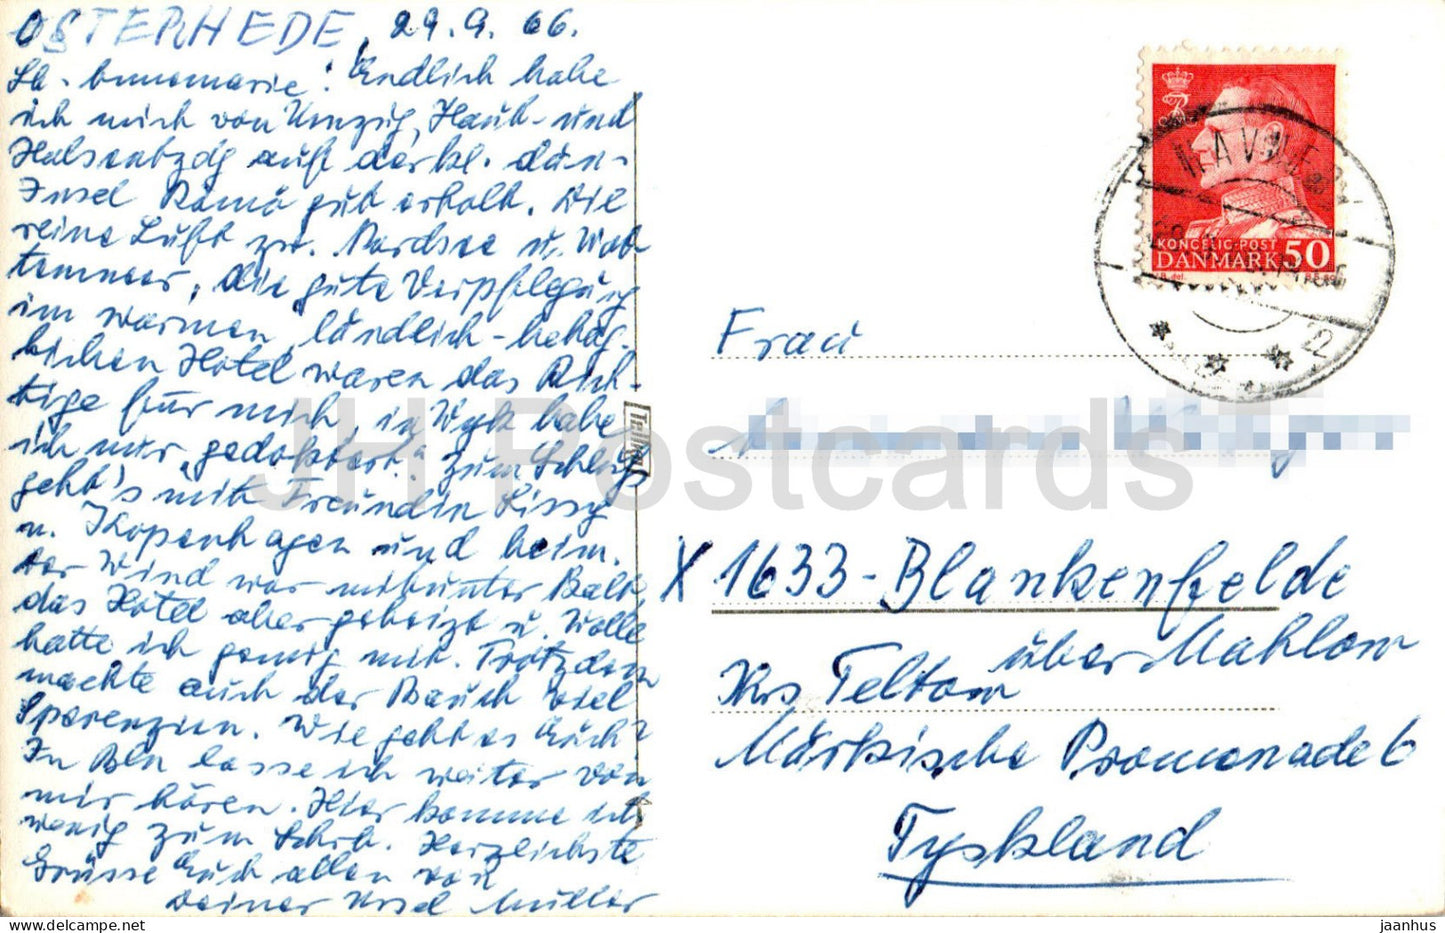 OSTERHEDE, 29.9.66.
Lb. Annemarie! Endlich habe
ich mich von Umzug, Haut- und
Halsentzdg auf der kl. dän.
Insel Römö gut erholt. Die
reine Luft zw. Nordsee u. Wat-
tenmeer, die gute Verpflegung
im warmen, ländlich-behag-
lichen Hotel waren das Rich-
tige für mich, in Wyk habe
ich nur "gedoktert". Zum Schluß
geht's mit Freundin Lissy
n. Kopenhagen und heim.
Der Wind war mitunter kalt,
das Hotel aber geheizt u. Wolle
hatte ich genug mit. Trotzdem
machte auch der Bauch viel
Sperenzien. Wie geht es Euch?
In Bln lasse ich weiter von
mir hören. Hier komme ich
wenig zum Schrb. Herzlichste
Grüsse Euch allen von
Deiner Ursel Müller
Trifolium
KONGELIG POST
DANMARK 50
HAVNEBY
22
Frau
X 1633-Blankenfelde
über Mahlow
Krs Teltow
Märkische Promenade 6
Tyskland
JH Postcards
delcampe.net
jaanhus